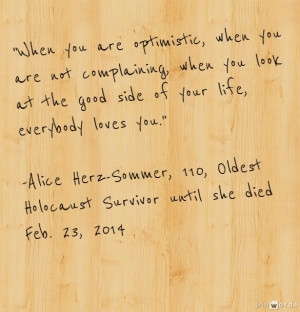 "When you are optimistic, when you
are not complaining, when you look
at the good side of your life,
everybody loves you."
-Alice Herz-Sommer, 110, Oldest
Holocaust Survivor until she died
Feb. 23, 2014